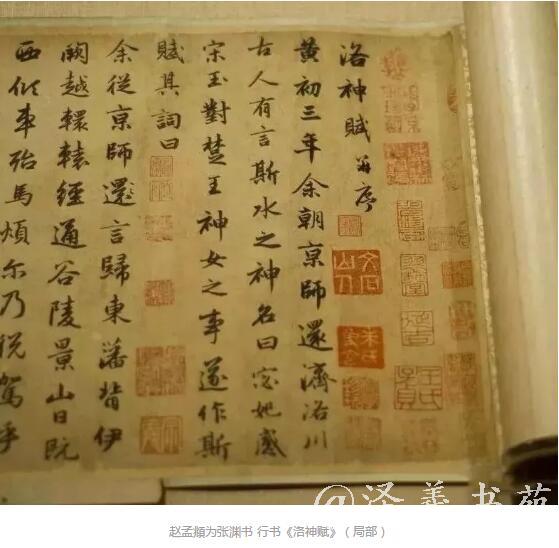 洛神賦并序
黃初三年余朝京師還濟洛川
古人有言斯水之神名曰宓妃感
宋玉對楚王神女之事遂作斯
賦其詞曰
余從京師還言歸東藩背伊
闕越轘轅經通谷陵景山日既
西傾車殆馬煩尔乃稅駕乎
@洛善书苑
赵孟頫为张渊书 行书《洛神赋》（局部）